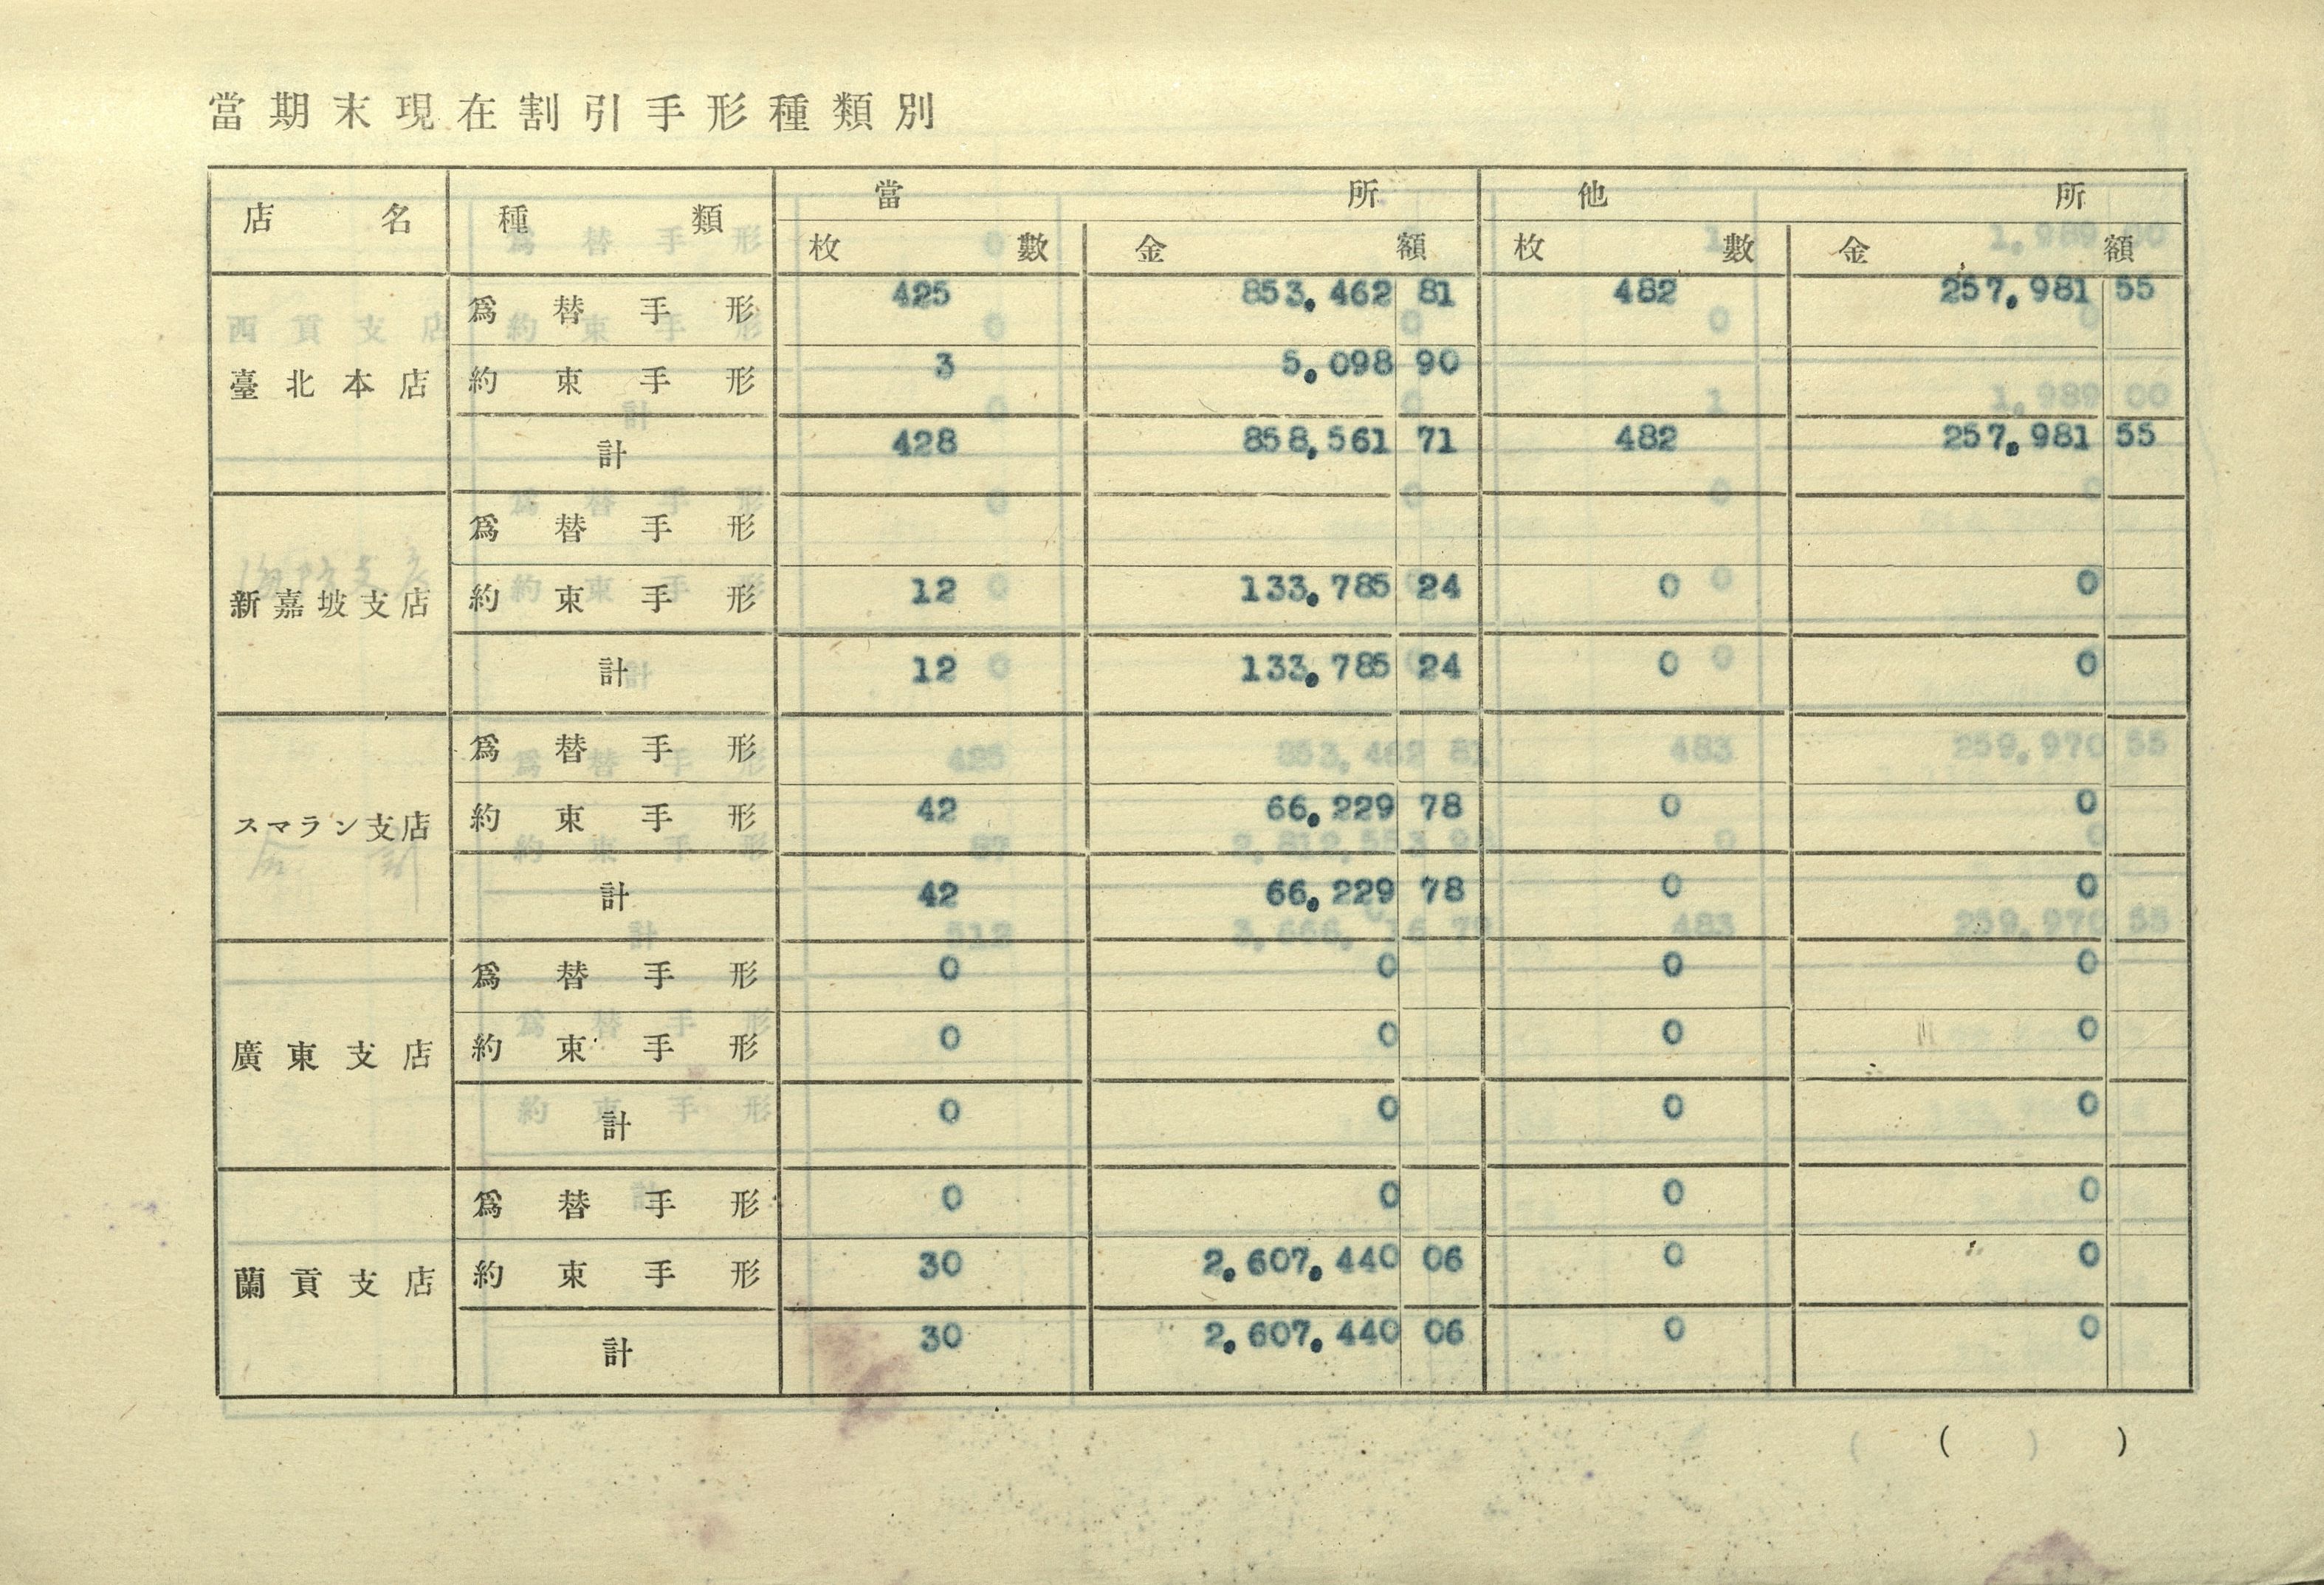 當期末現在割引手形種類別
店名 種類 當所 他所
枚數 金額 枚數 金額
臺北本店 爲替手形 425 853,462 81 482 257,981 55
約束手形 3 5,098 90
計 428 858,561 71 482 257,981 55
新嘉坡支店 爲替手形
約束手形 12 133,785 24 0 0
計 12 133,785 24 0 0
スマラン支店 爲替手形
約束手形 42 66,229 78 0 0
計 42 66,229 78 0 0
廣東支店 爲替手形 0 0 0 0
約束手形 0 0 0 0
計 0 0 0 0
蘭貢支店 爲替手形 0 0 0 0
約束手形 30 2,607,440 06 0 0
計 30 2,607,440 06 0 0
( )